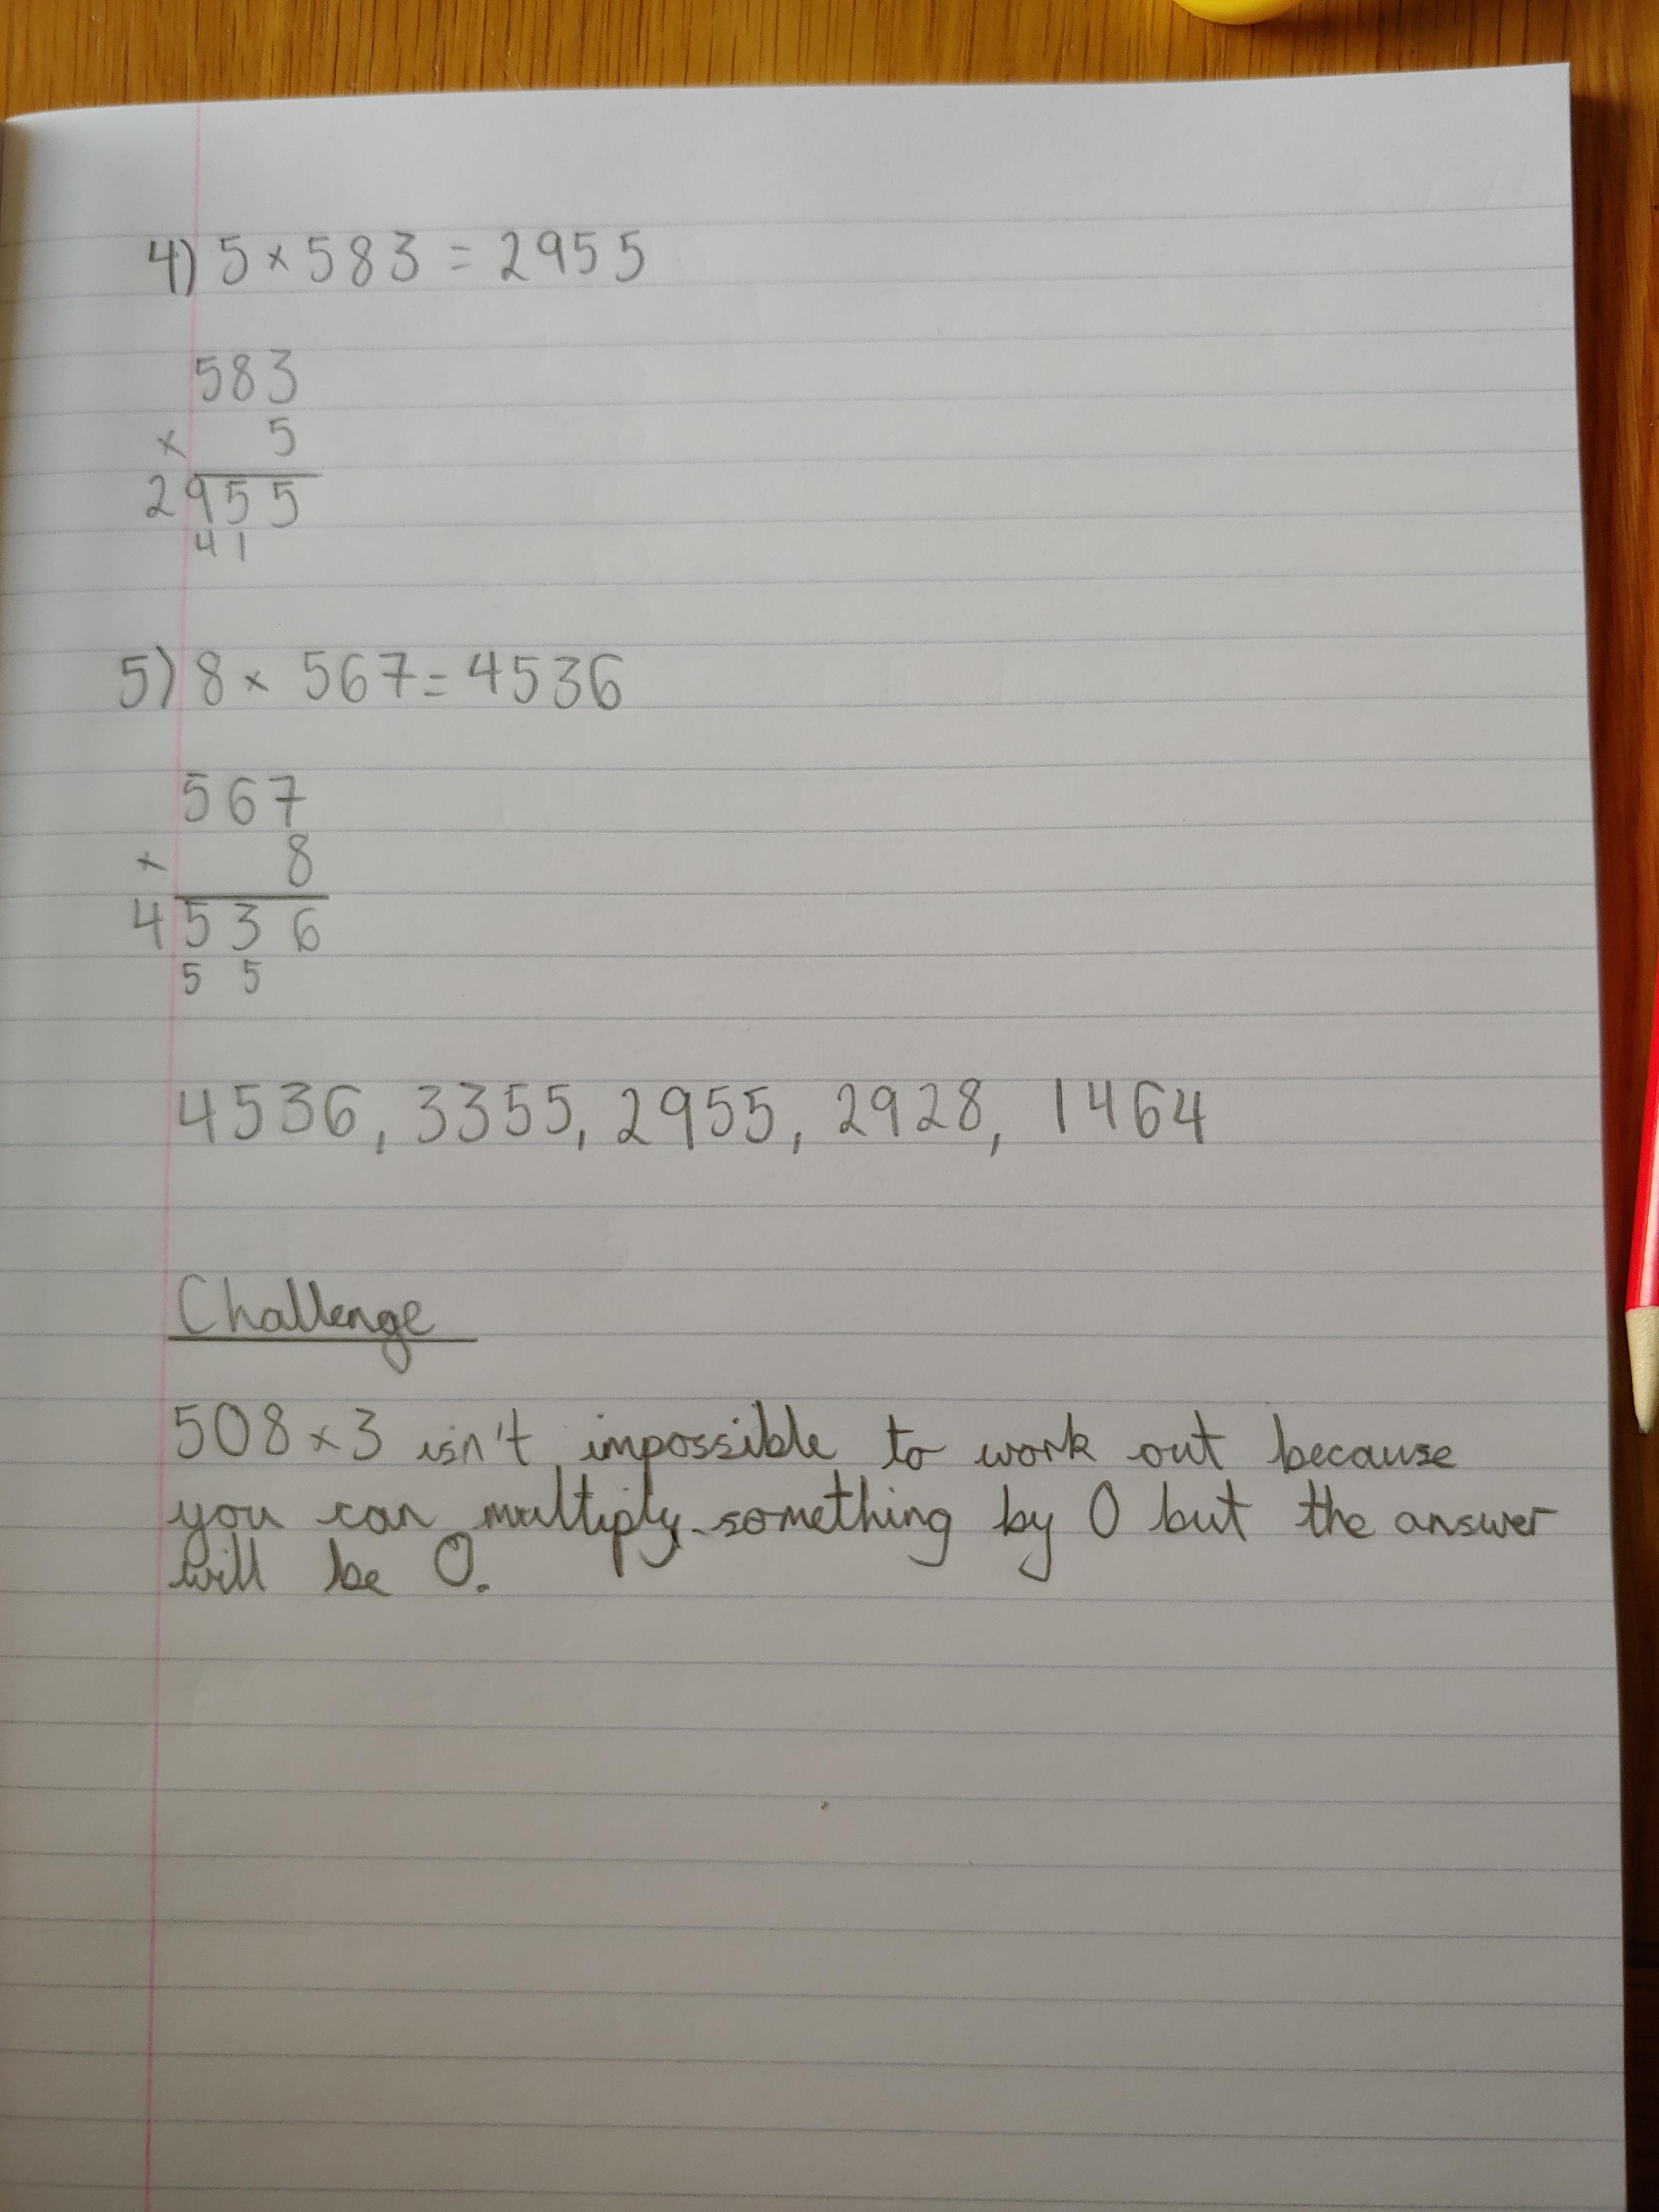 4) 5 × 583 = 2955
583
× 5
2955
41
5) 8 × 567 = 4536
567
× 8
4536
5 5
4536, 3355, 2955, 2928, 1464
Challenge
508 × 3 isn't impossible to work out because
you can multiply something by 0 but the answer
will be 0.